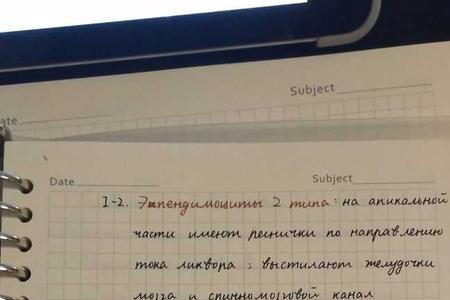 Subject
ate
Date
Subject
I-2. Эпендимоциты 2 типа: на апикальной
части имеют реснички по направлению
тока ликвора; выстилают желудочки
мозга и спинномозговой канал